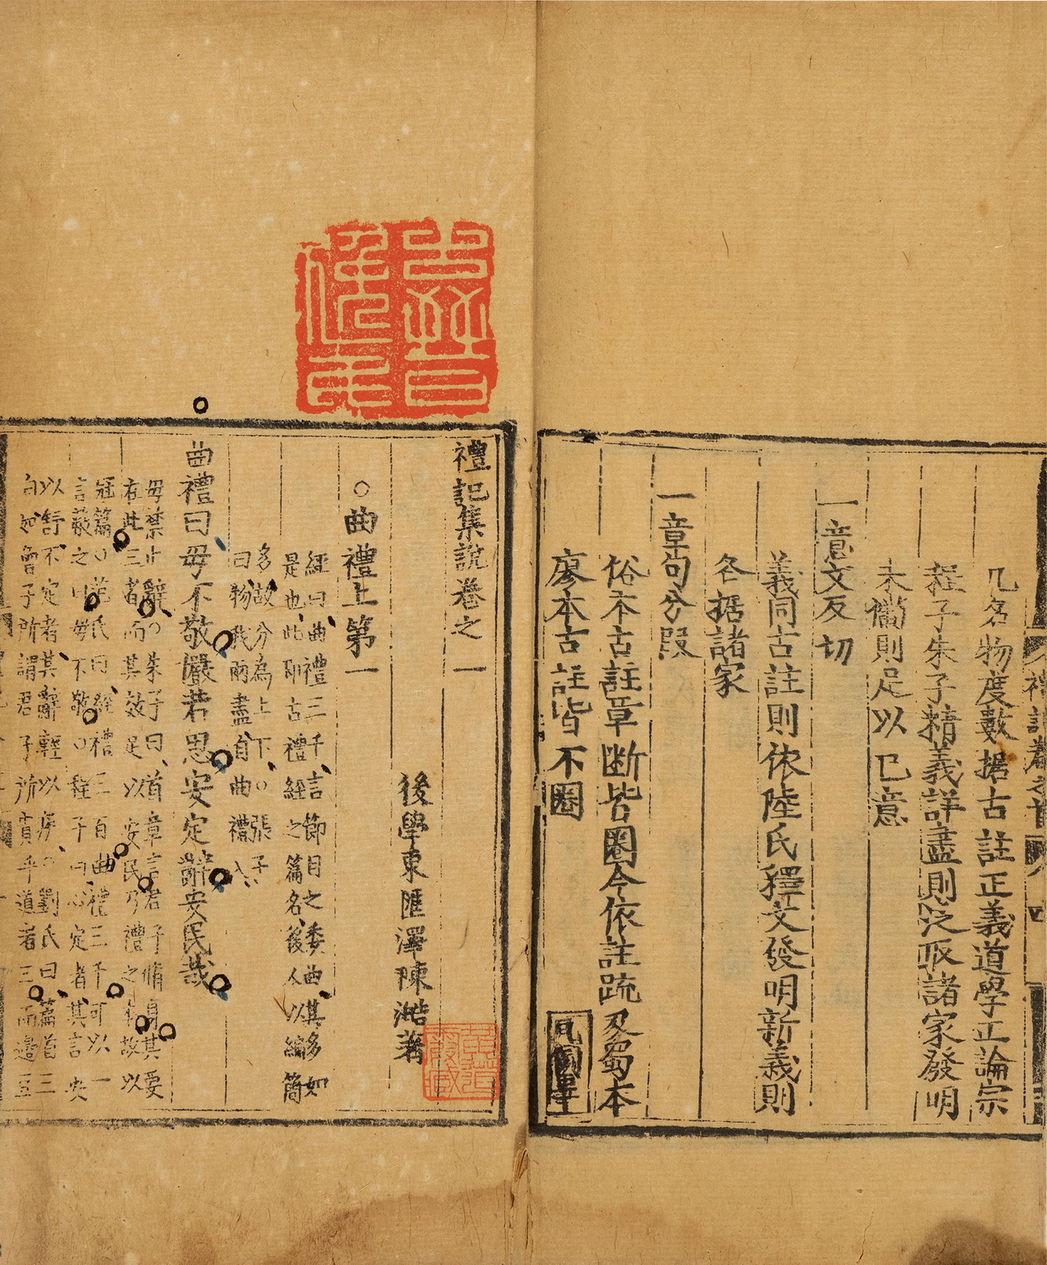 凡名物度數据古註正義道學正論宗
程子朱子精義詳盡則泛取諸家發明
未備則足以己意
一音文反切
義同古註則依陸氏釋文發明新義則
各据諸家
一章句分段
俗本古註章断皆圈今依註疏及蜀本
廖本古註皆不圈
禮記卷之首
四
禮記集說卷之一
後學東匯澤陳澔著
○曲禮上第一
經曰曲禮三千言節目之委曲其多如
是也此即古禮經之篇名後人以編簡
多故分為上下○張子
曰物我兩盡自曲禮入
曲禮曰毋不敬嚴若思安定辭安民哉
毋禁止辭○朱子曰首章言君子脩身其要
在此三者而其效足以安民乃禮之本故以
冠篇○范氏曰經禮三百曲禮三千可以一
言蔽之曰毋不敬○程子曰心定者其言安
以舒不定者其辭輕以疾○劉氏曰篇首三
句如曾子所謂君子所貴乎道者三而籩豆